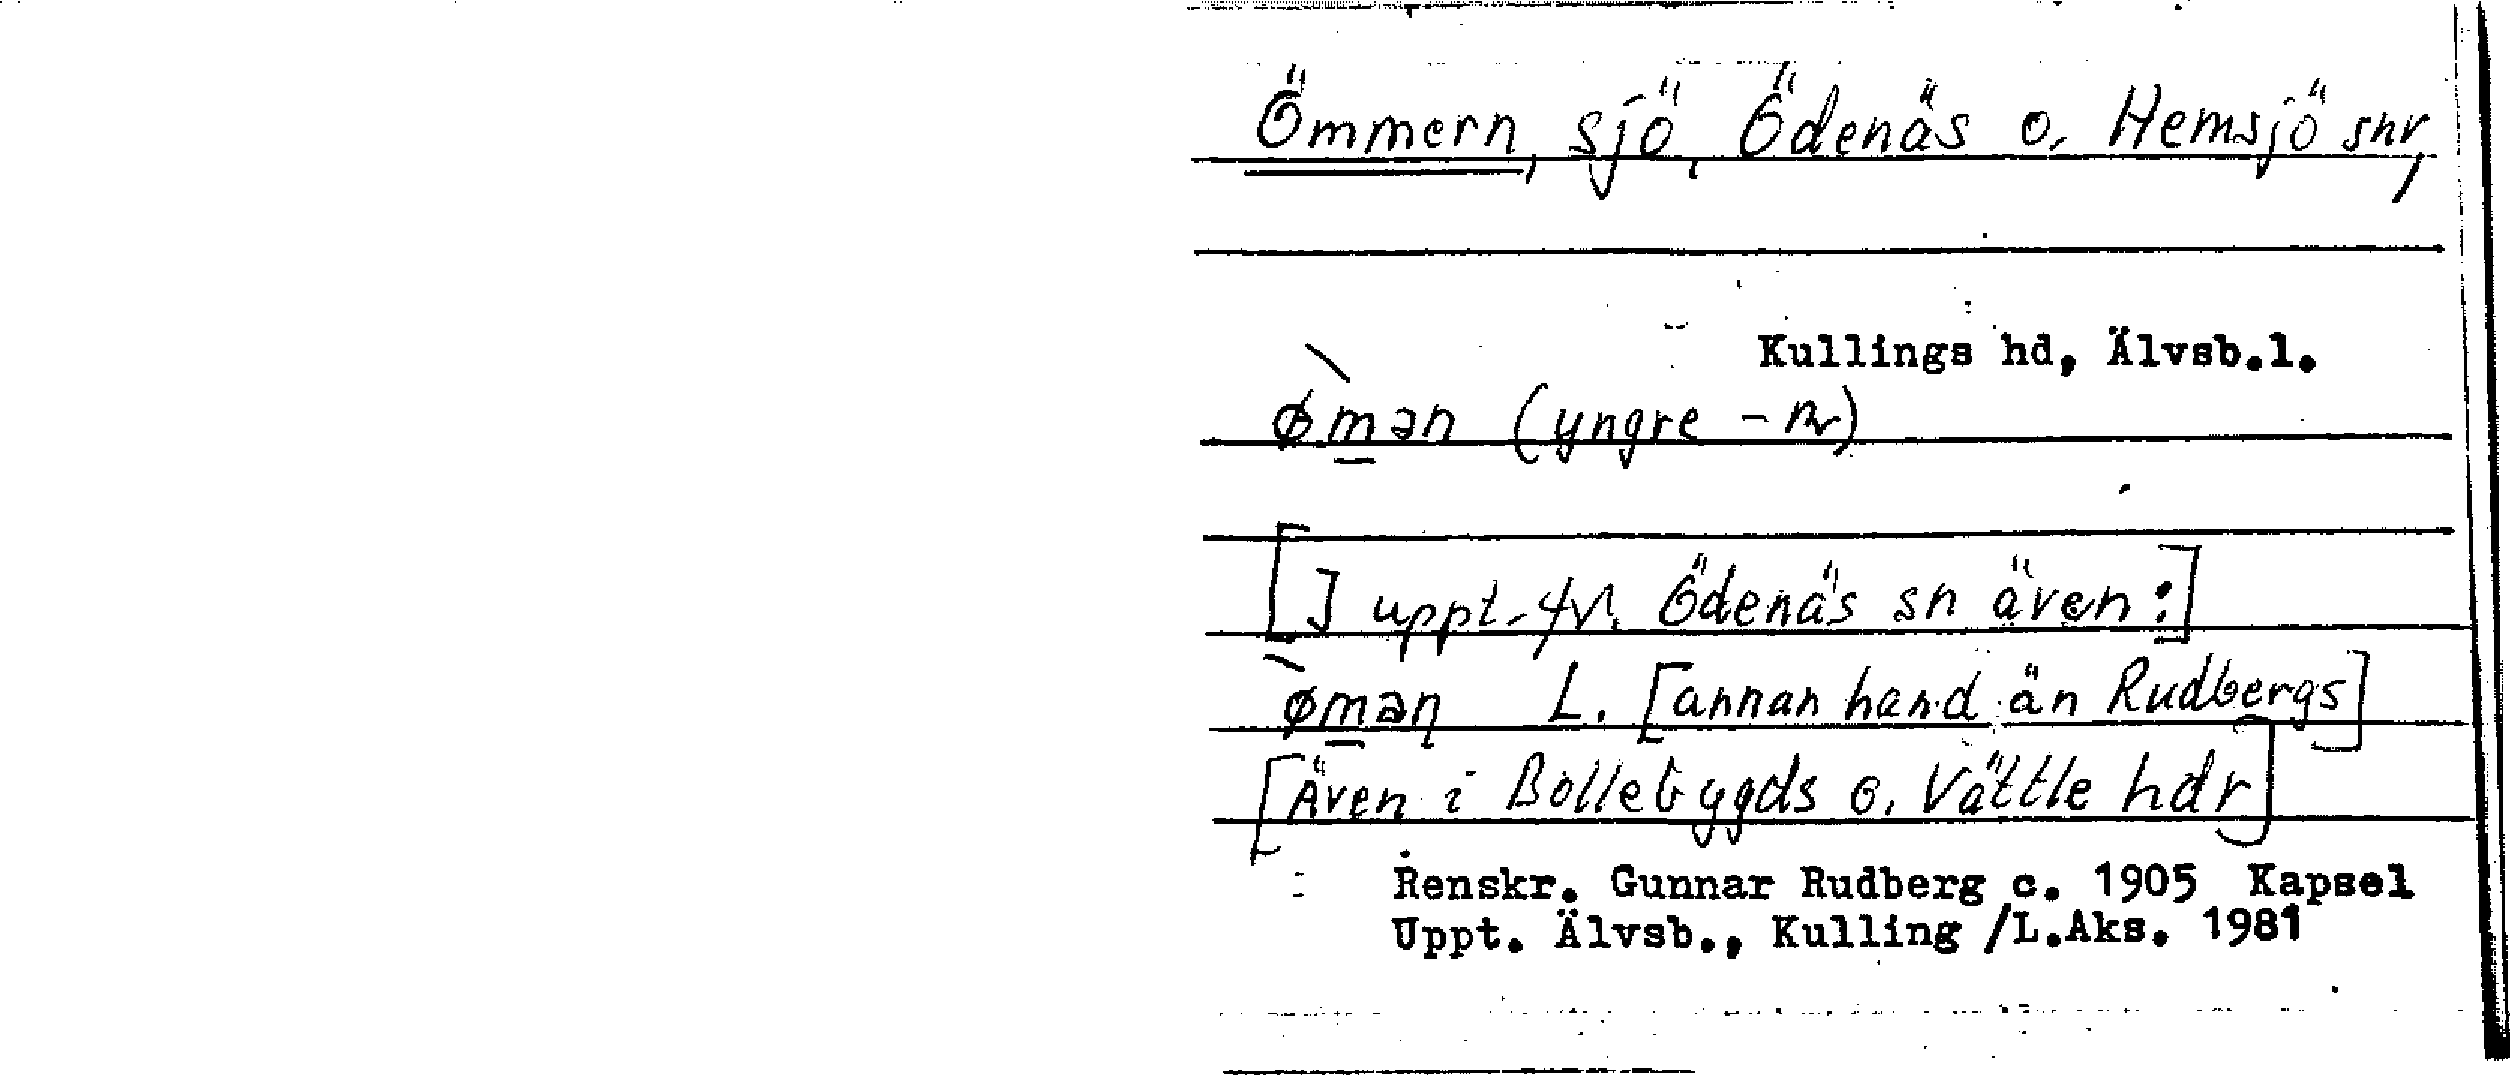 Ömmern, sjö, Ödenäs o. Hemsjö snr,
Kullings hd, Älvsb.l.
ø̀m̲ən (yngre -n)
[ ] uppt. fr. Ödenäs sn även:]
ø̀m̲əη L. [annan hand än Rudbergs]
[Även i Bollebygds o. Vättle hdr]
Renskr. Gunnar Rudberg c. 1905 Kapsel
Uppt. Älvsb., Kulling /L.Aks. 1981